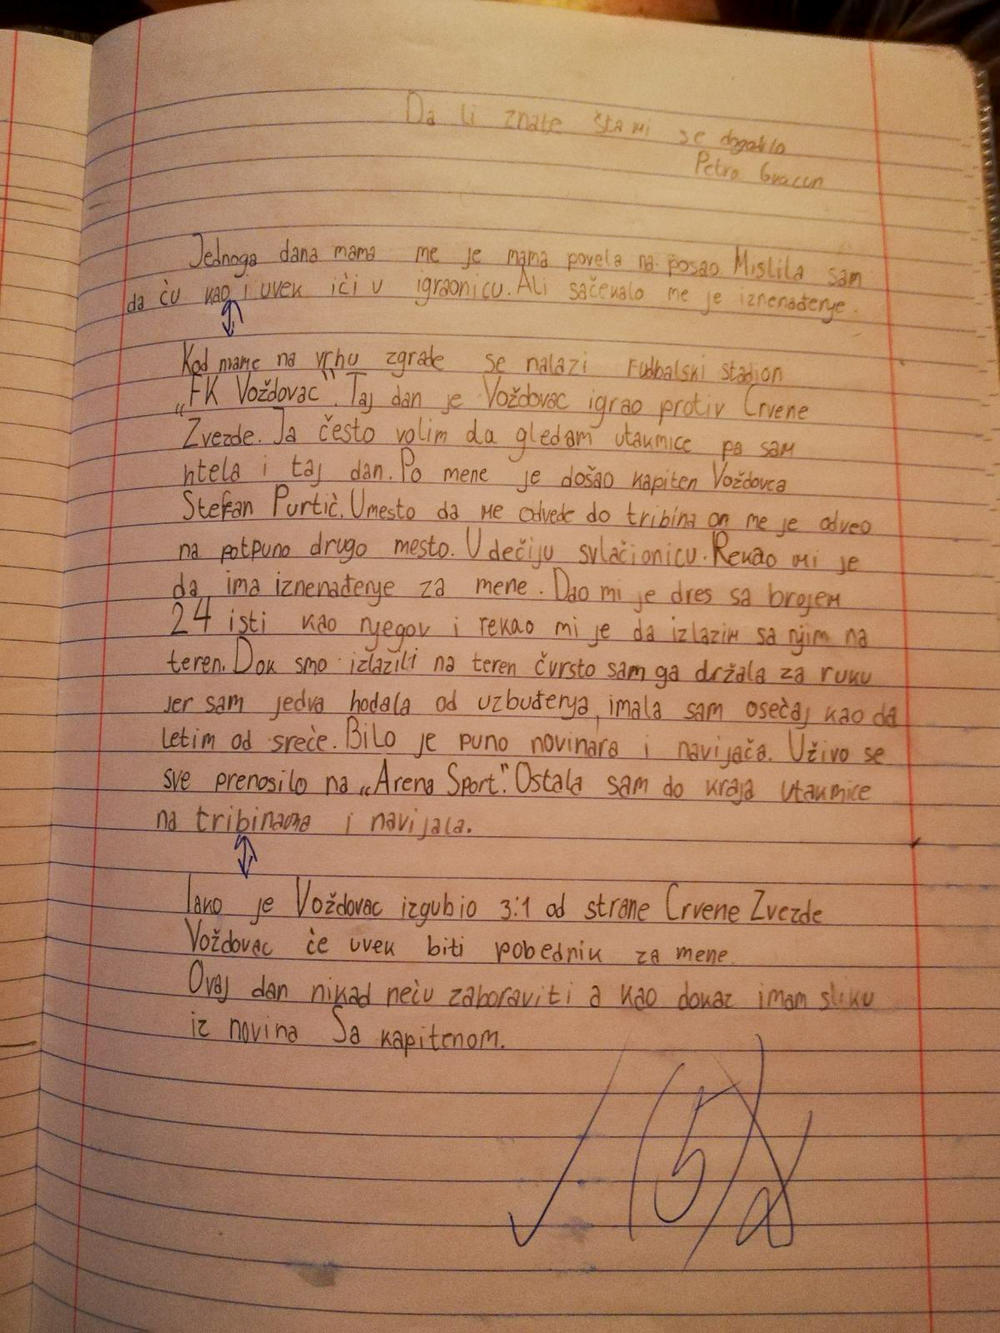 Da li znate šta mi se dogodilo
Petra
Jednoga dana mama me je mama povela na posao Mislila sam
da ću kao i uvek ići u igraonicu. Ali sačekalo me je iznenađenje.
Kod mame na vrhu zgrade se nalazi Fudbalski stadion
„FK Voždovac“. Taj dan je Voždovac igrao protiv Crvene
Zvezde. Ja često volim da gledam utakmice pa sam
htela i taj dan. Po mene je došao kapiten Voždovca
Stefan Purtić. Umesto da me odvede do tribina on me je odveo
na potpuno drugo mesto. U dečiju svlačionicu. Rekao mi je
da ima iznenađenje za mene. Dao mi je dres sa brojem
24 isti kao njegov i rekao mi je da izlazim sa njim na
teren. Dok smo izlazili na teren čvrsto sam ga držala za ruku
jer sam jedva hodala od uzbuđenja, imala sam osećaj kao da
letim od sreće. Bilo je puno novinara i navijača. Uživo se
sve prenosilo na „Arena Sport“. Ostala sam do kraja utakmice
na tribinama i navijala.
Iako je Voždovac izgubio 3:1 od strane Crvene Zvezde
Voždovac će uvek biti pobednik za mene.
Ovaj dan nikad neću zaboraviti a kao dokaz imam sliku
iz novina Sa kapitenom.
(5)